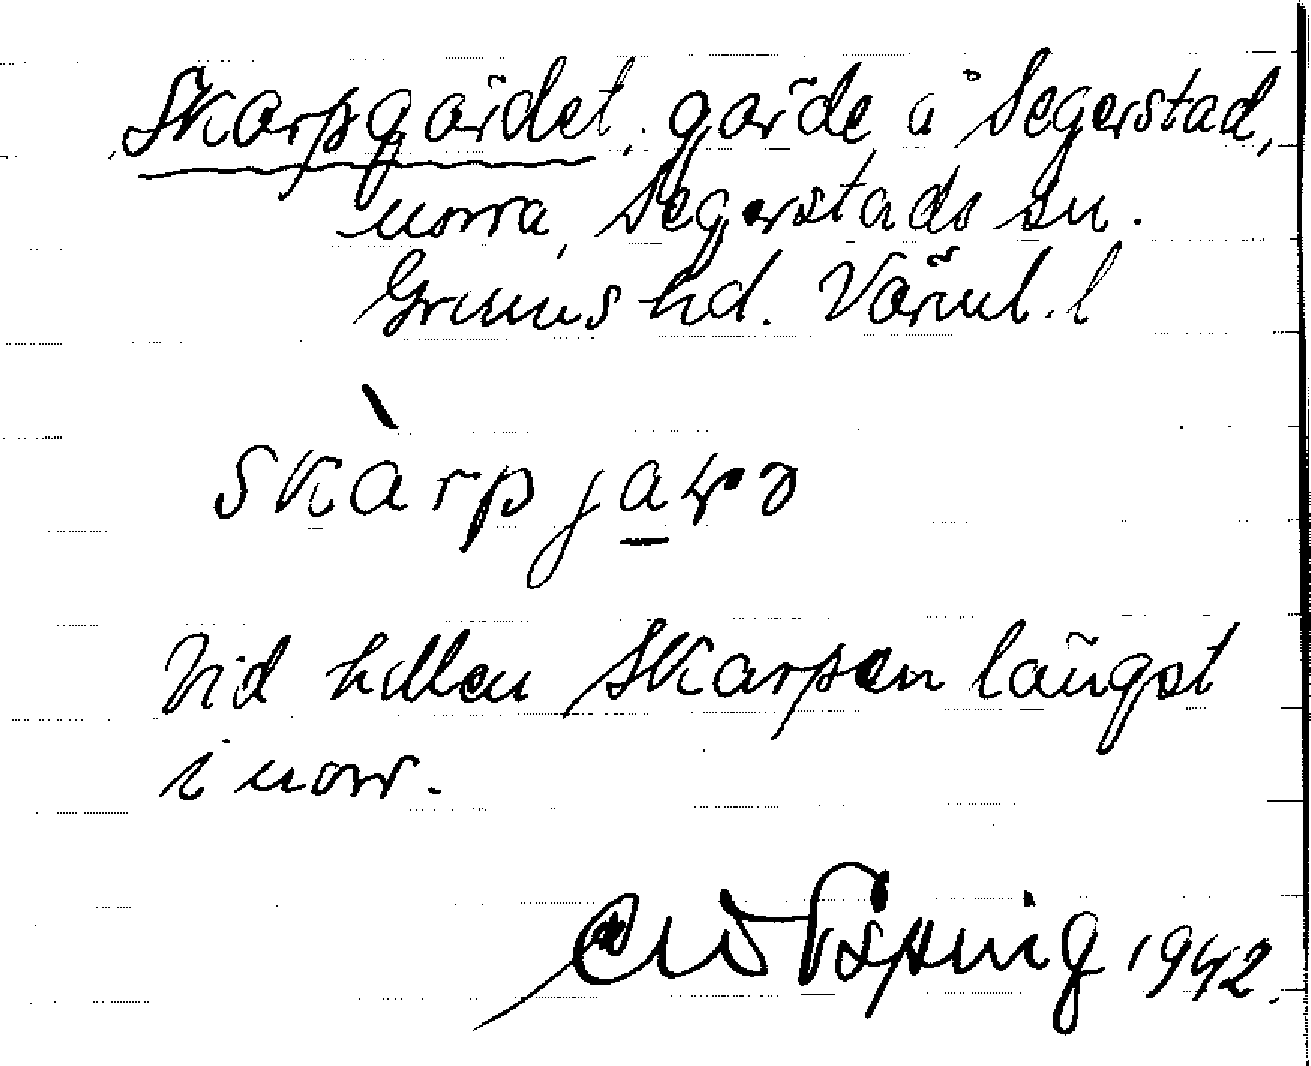 Skarpgärdet, gärde å Segerstad,
norra, Segerstads sn.
Grums hd. Värml. l
skàrpja
Vid hållen Skarpen längst
i norr.
1942.